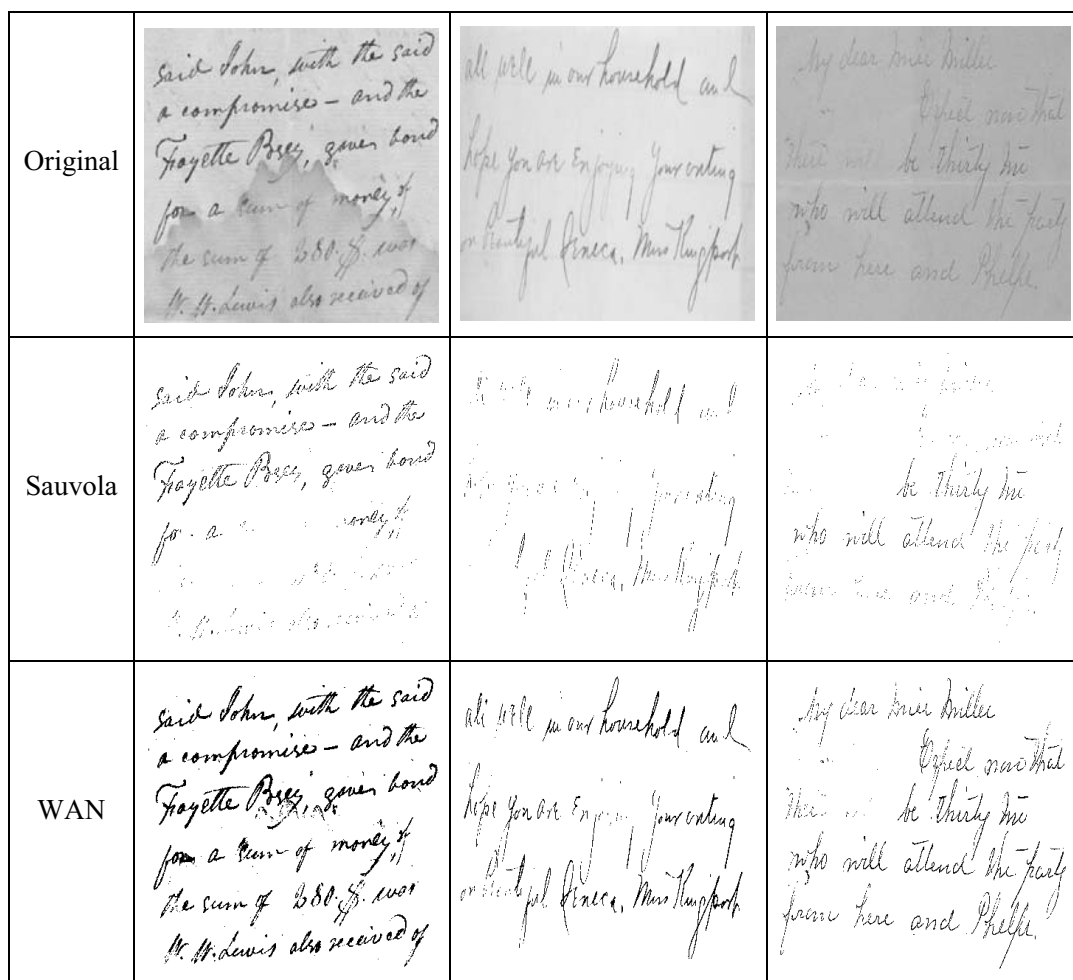 Original
said John, with the said
a compromise – and the
Fayette Posey, gives bond
for a sum of money, if
the sum of 280.$. was
W. H. Lewis also received of
all well in our household and
hope you are Enjoying your outing
on beautiful Seneca, Miss Kingport
My dear Miss Miller
Expect now that
there will be thirty five
who will attend the party
from here and Phelps.
Sauvola
said John, with the said
a compromise – and the
Fayette Posey, gives bond
for a money, if
W. H. Lewis also received of
household and
Seneca, Miss Kingport
be thirty five
who will attend the party
from here and
WAN
said John, with the said
a compromise – and the
Fayette Posey, gives bond
for a sum of money, if
the sum of 280.$. was
W. H. Lewis also received of
all well in our household and
hope you are Enjoying your outing
on beautiful Seneca, Miss Kingport
My dear Miss Miller
Expect now that
there be thirty five
who will attend the party
from here and Phelps.